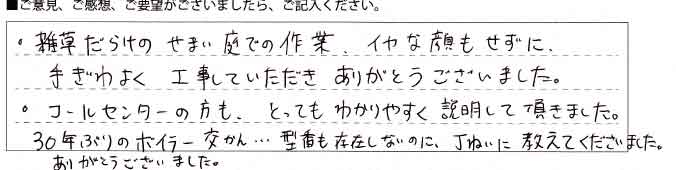 ■ご意見、ご感想、ご要望がございましたら、ご記入ください。
。雑草だらけの せまい庭での作業、イヤな顔もせずに、
手ぎわよく 工事していただき ありがとうございました。
。コールセンターの方も、とっても わかりやすく 説明して頂きました。
30年ぶりのボイラー交かん… 型番も存在しないのに、丁ねいに 教えてくださいました。
ありがとうございました。